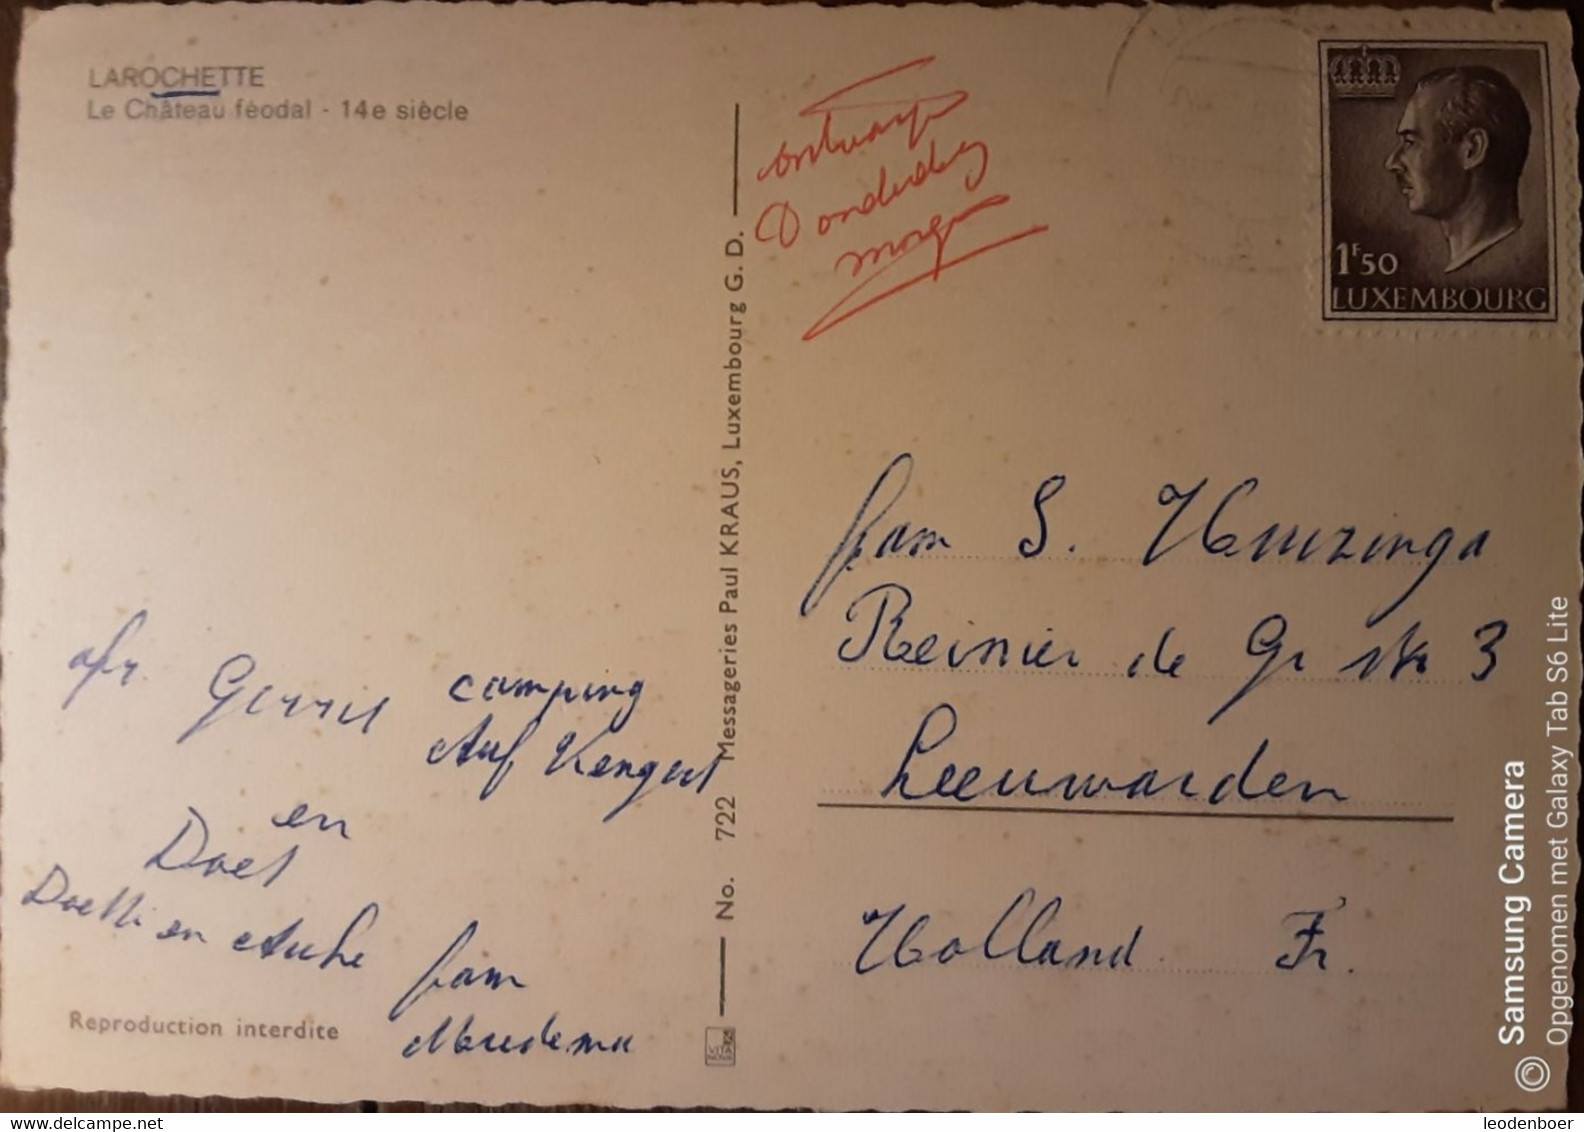 LAROCHETTE
Le Château féodal - 14e siècle
Donderdag
1F50
LUXEMBOURG
fam S. Huizinga
Reinier de Gr str 3
Leeuwarden
Holland Fr.
afz.
Gerrit
camping
Auf Kengert
en
Doet
en Auke
fam
Reproduction interdite
No. 722 Messageries Paul KRAUS, Luxembourg G. D.
VITA
NOVA
Samsung Camera
Opgenomen met Galaxy Tab S6 Lite
delcampe.net
leodenboer